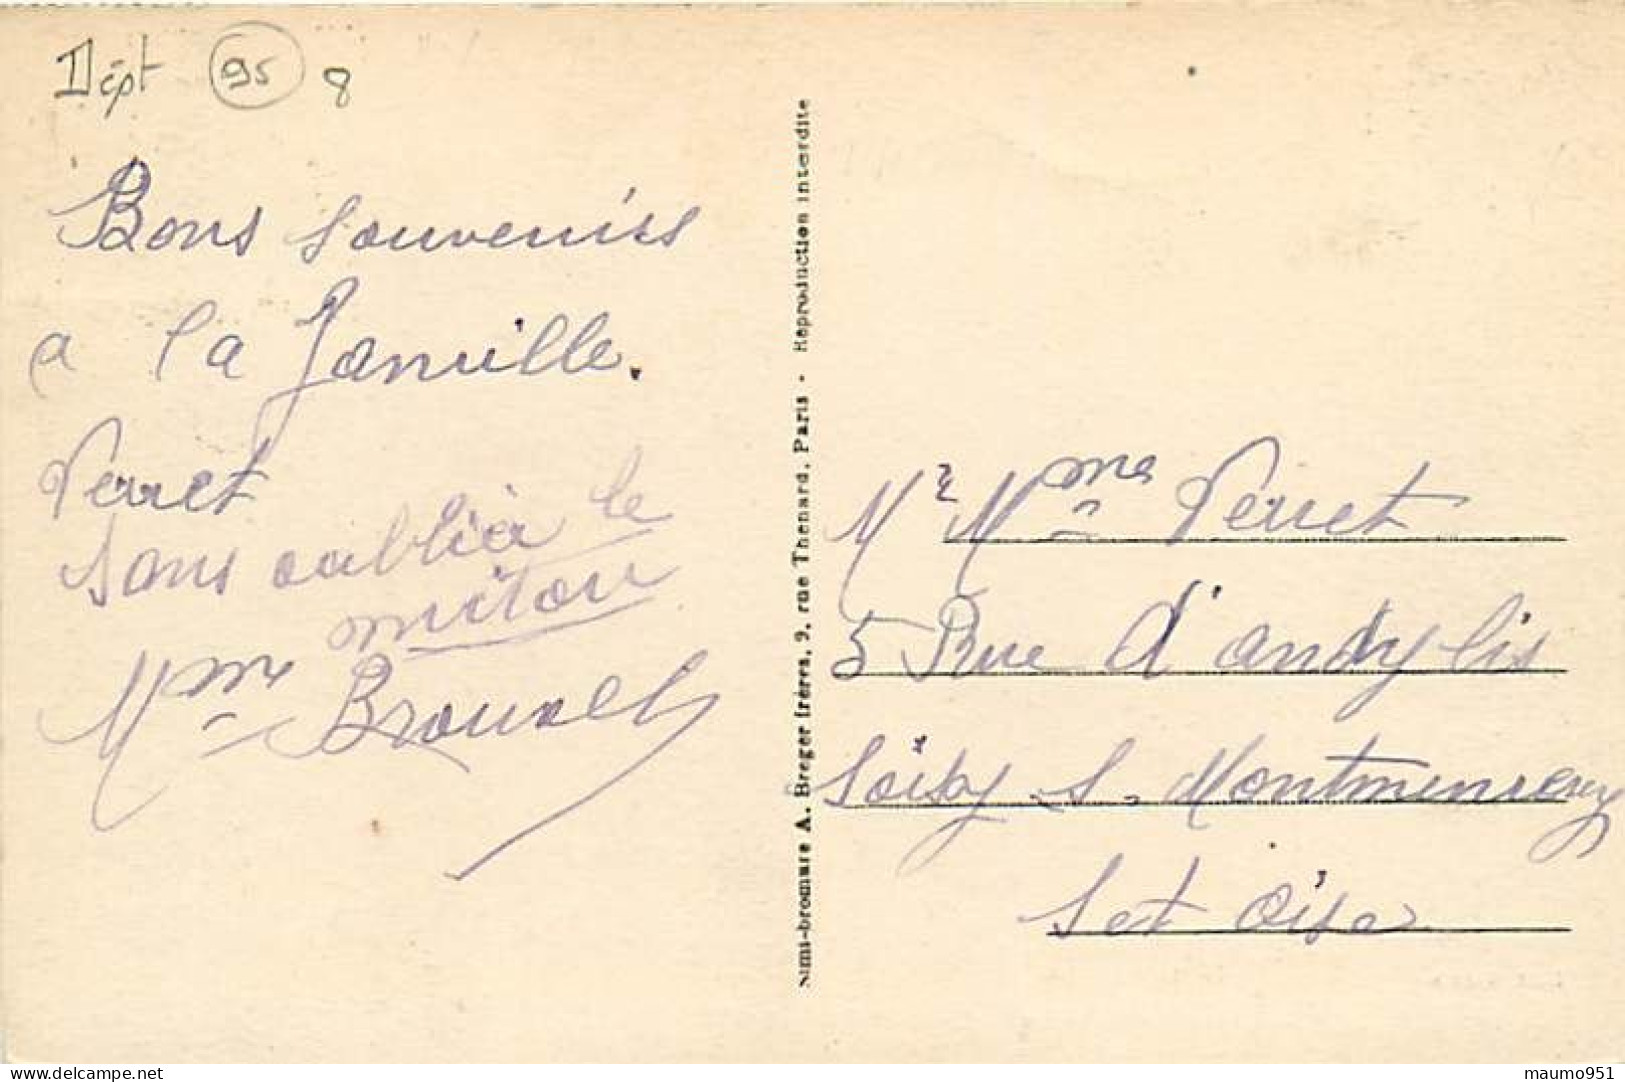 Dépt 95 8
Bons souvenirs
a la famille.
Perret
sans oublier le
miton
Mme
Semi-bromure A. Breger frères, 9, rue Thénard, Paris - Reproduction interdite
Mr Mme Perret
5 Rue d'andylis
Soisy s. Montmenrency
Set Oise
delcampe.net
maumo951